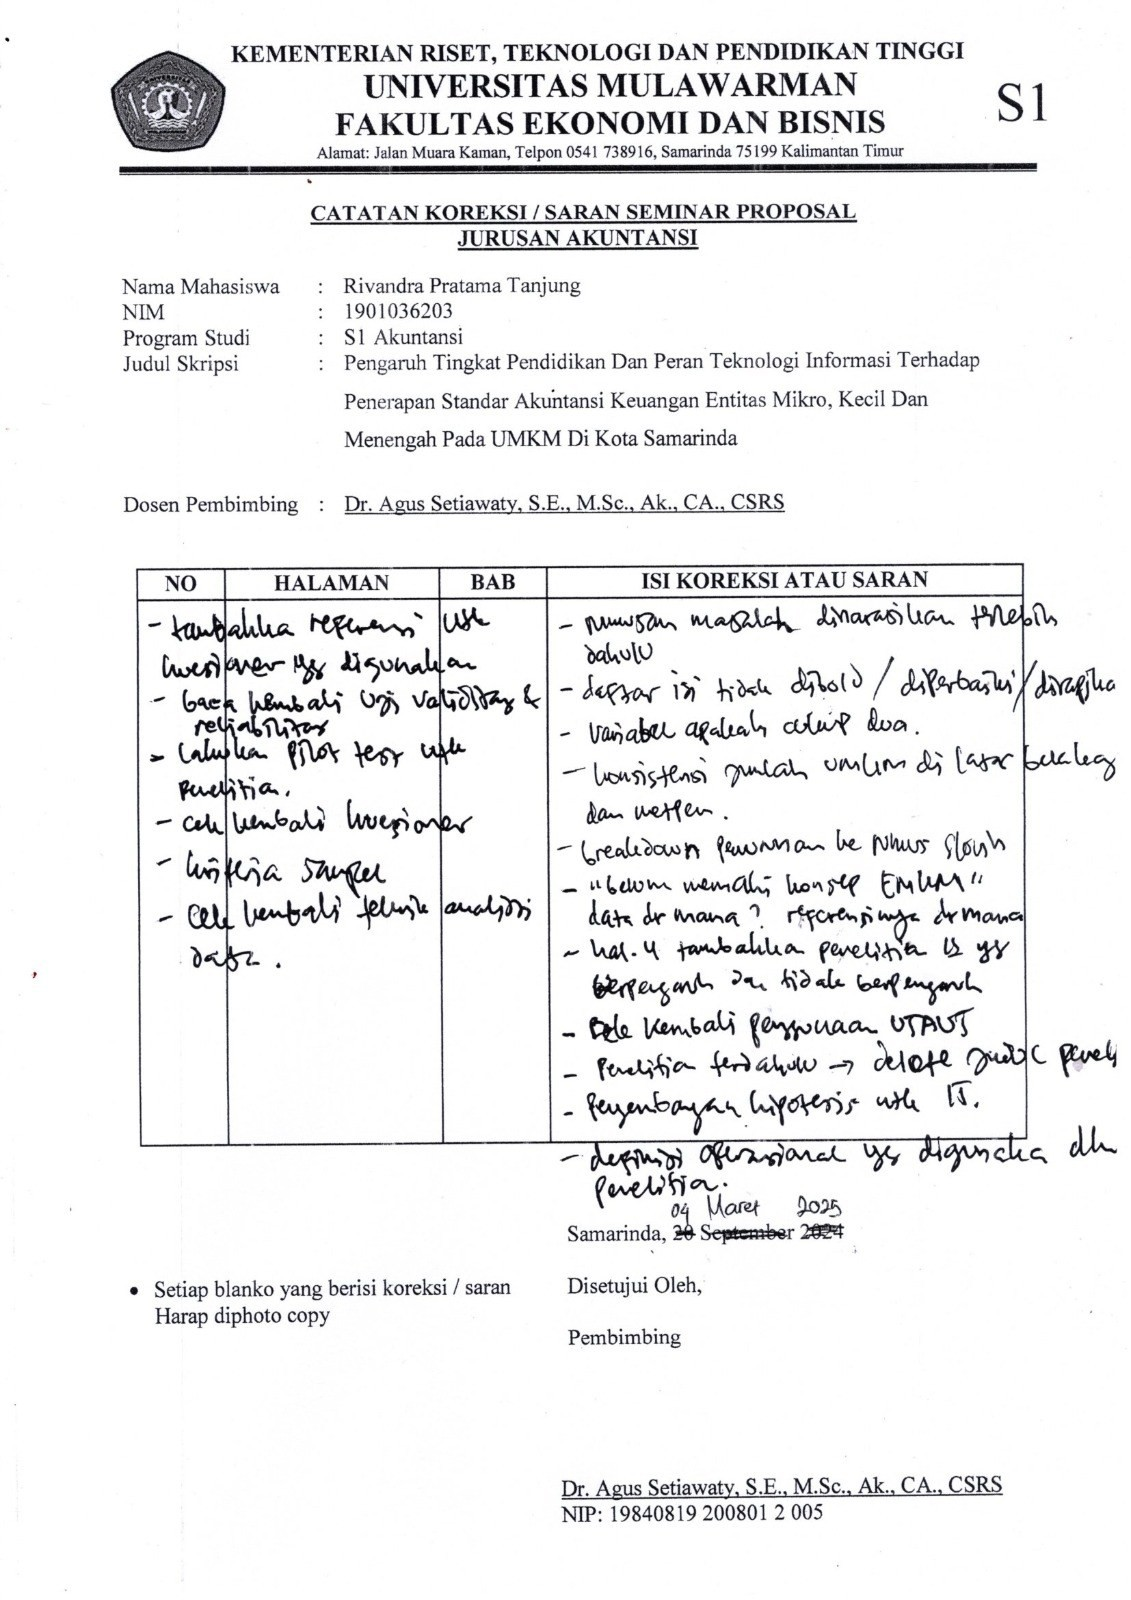 KEMENTERIAN RISET, TEKNOLOGI DAN PENDIDIKAN TINGGI
UNIVERSITAS MULAWARMAN
FAKULTAS EKONOMI DAN BISNIS
S1
Alamat: Jalan Muara Kaman, Telpon 0541 738916, Samarinda 75199 Kalimantan Timur
CATATAN KOREKSI / SARAN SEMINAR PROPOSAL
JURUSAN AKUNTANSI
Nama Mahasiswa : Rivandra Pratama Tanjung
NIM : 1901036203
Program Studi : S1 Akuntansi
Judul Skripsi : Pengaruh Tingkat Pendidikan Dan Peran Teknologi Informasi Terhadap
Penerapan Standar Akuntansi Keuangan Entitas Mikro, Kecil Dan
Menengah Pada UMKM Di Kota Samarinda
Dosen Pembimbing : Dr. Agus Setiawaty, S.E., M.Sc., Ak., CA., CSRS
NO HALAMAN BAB ISI KOREKSI ATAU SARAN
- tambahka referensi utk
kuesioner yg digunakan
- baca kembali uji validitas &
reliabilitas
- lakukan pilot test utk
penelitia.
- cek kembali kuesioner
- kriteria sampel
- cek kembali teknik analisis
data.
- rumusan masalah dinarasikan terlebih
dahulu
- daftar isi tidak dibold / diperbaiki / dirapika
- variabel apakah cukup dua.
- konsistensi jumlah umkm di latar belakag
dan metpen.
- breakdown penurunan ke rumus slovin
- "belum memahi konsep EMKM"
data dr mana? referensinya dr mana
- hal. 4 tambahka penelitia yg
berpengaruh dan tidak berpengaruh
- Cek kembali penggunaan UTAUT
- Penelitia terdahulu → delete
- Pengembangan hipotesis utk IT.
- definisi operasional yg digunaka dlm
penelitia.
04 Maret 2025
Samarinda, 20 September 2024
• Setiap blanko yang berisi koreksi / saran
Harap diphoto copy
Disetujui Oleh,
Pembimbing
Dr. Agus Setiawaty, S.E., M.Sc., Ak., CA., CSRS
NIP: 19840819 200801 2 005